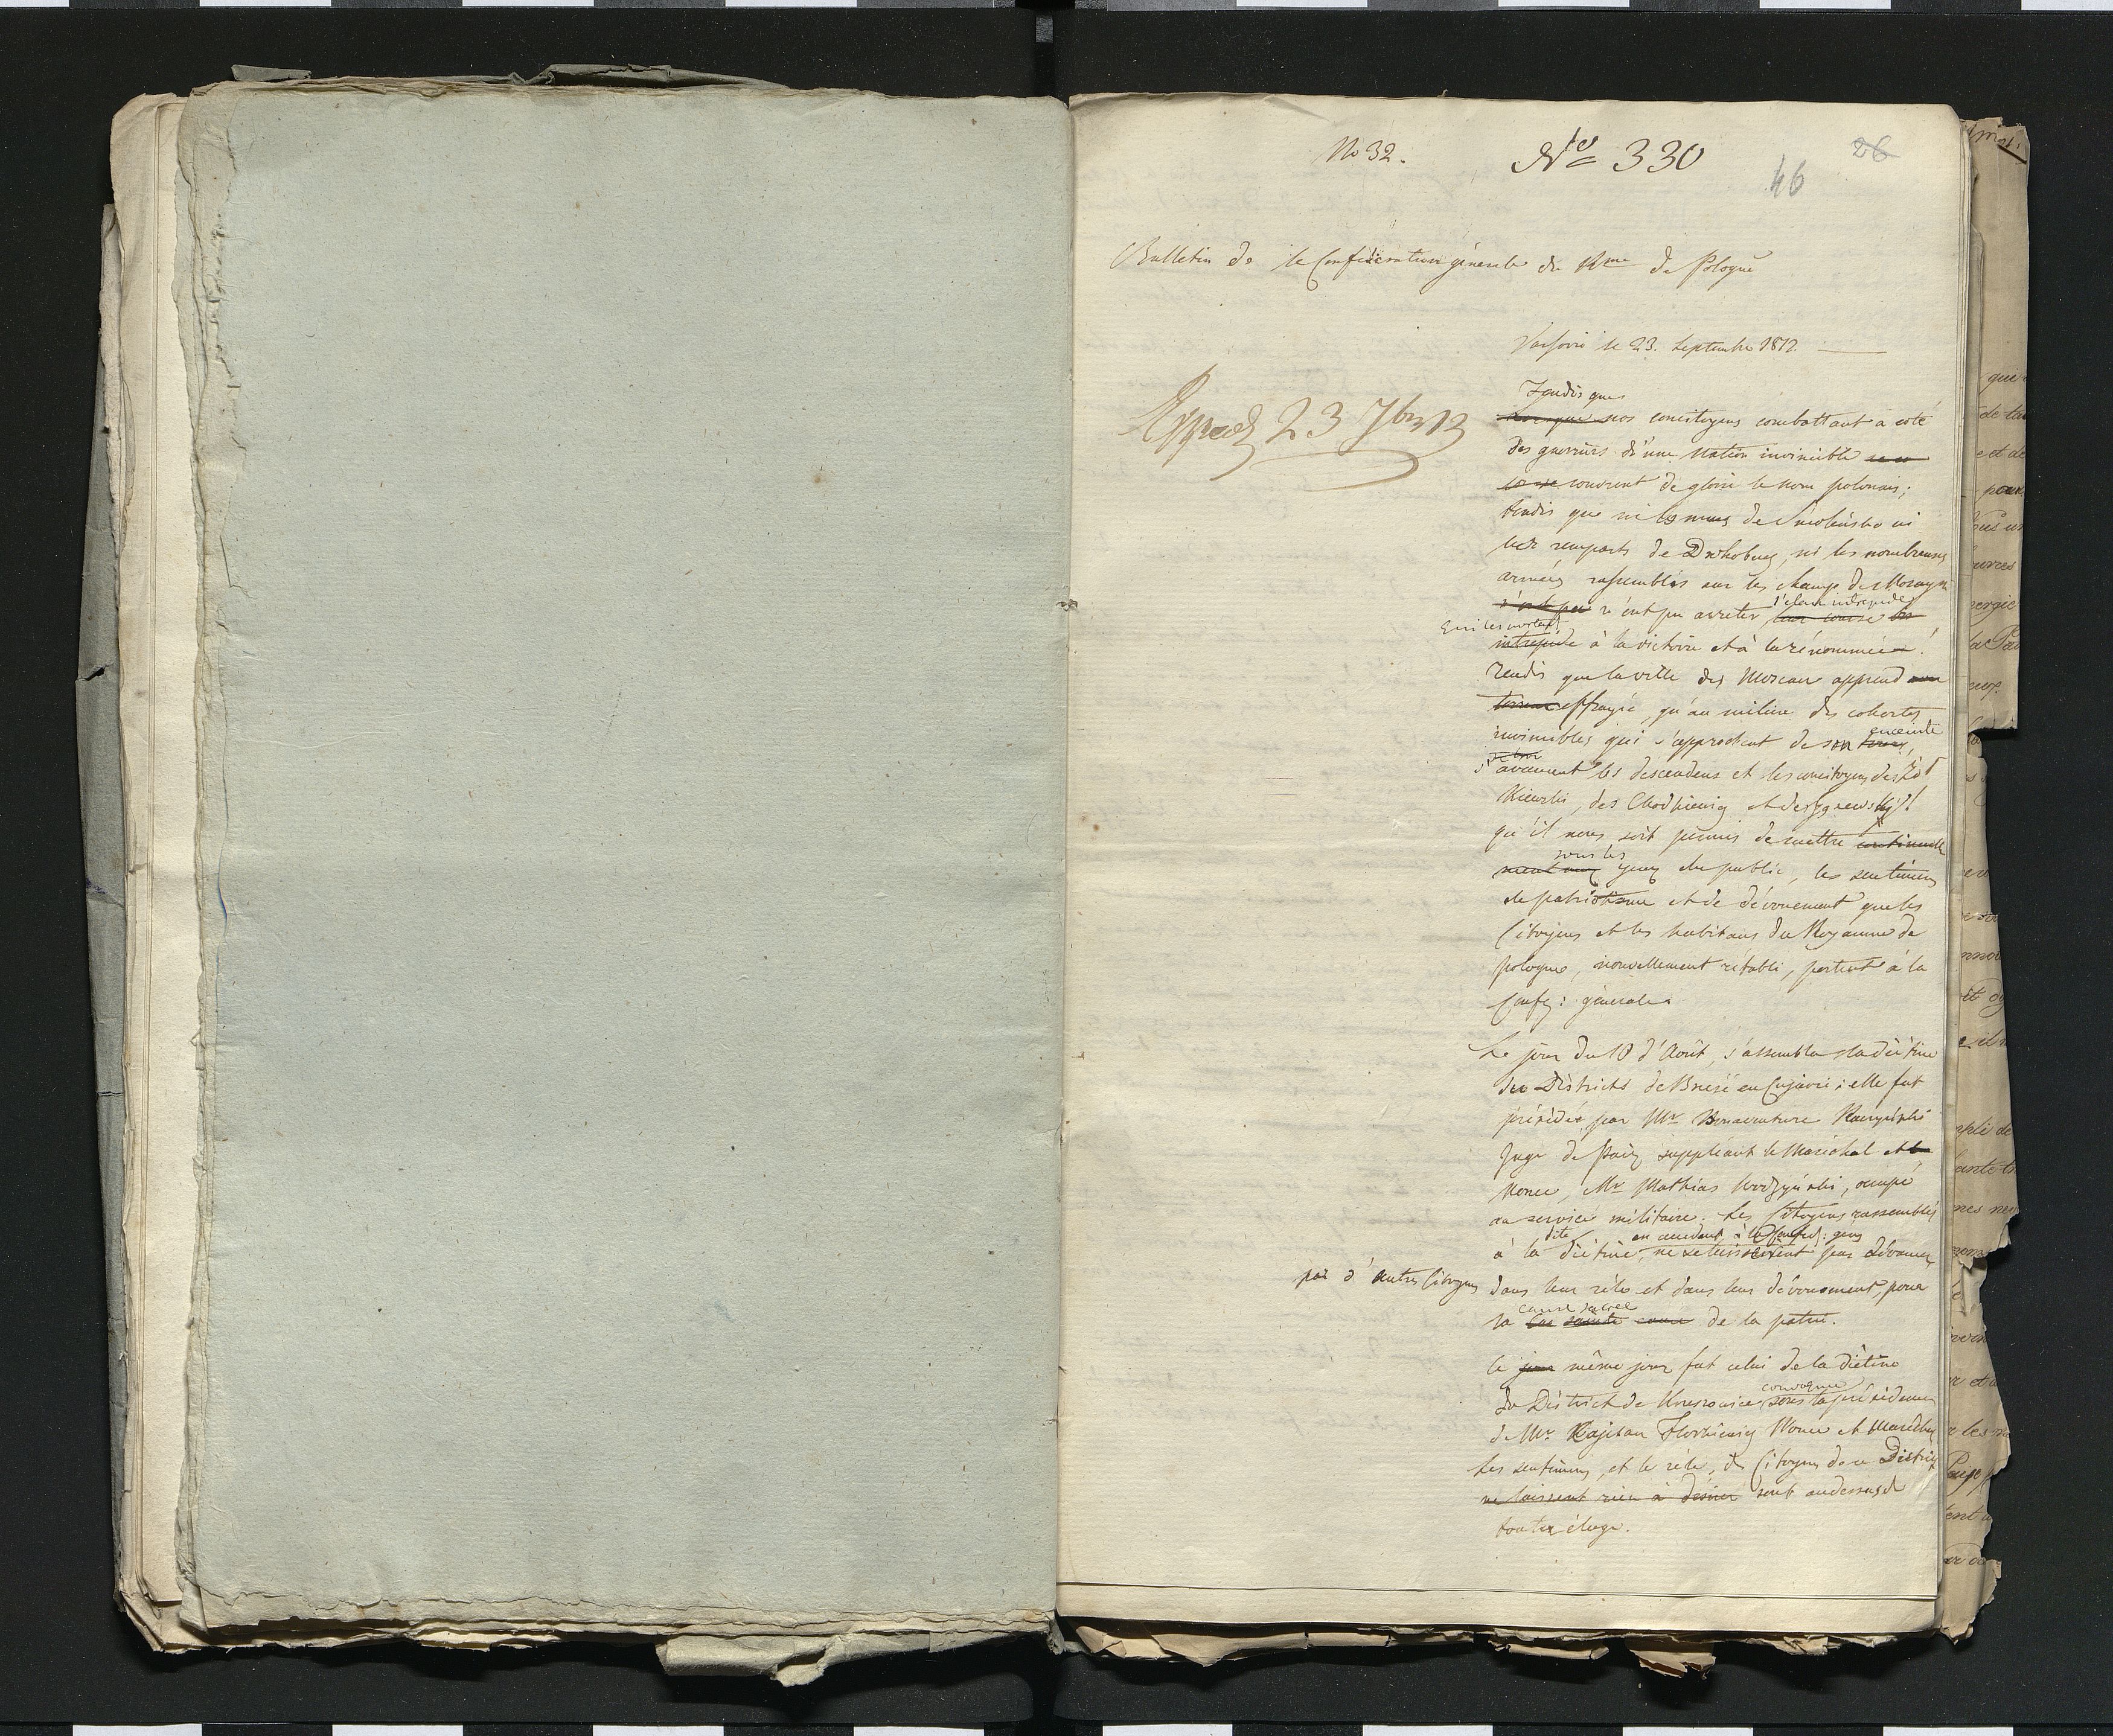 No 32.
No 330
46
26
Bulletin de la Confédération génerale du Rme de Pologne
Varsovie le 23. Septembre 1812.
Exped 23 7br 12
Tandis que
nos concitoyens combattant à coté
des guerriers d'une Nation invincible
couvrent de gloire le nom polonais;
tandis que ni les murs de Smolensko ni
les remparts de Drohobuz, ni les nombreuses
armées rassemblés sur les champs de Mozaysk
n'ont pu n'ont pu arreter l'élan intrepide
qui les portent
intrépide à la victoire et à la rénommée!
Tandis que la ville des Moscou apprend
terreur effrayée, qu'au milieu des cohortes
invincibles qui s'approchent de son enceinte
s'avancent les descendens et les concitoyens des Zol
kiewski, des Chodkiewicz et des
qu'il nous soit permis de mettre continuelle
ment aux sous les yeux du public, les sentimens
de patriotisme et de dévouement que les
Citoyens et les habitans du Royaume de
pologne, nouvellement retabli, portent à la
Conf: génerale.
Le jour du 10 d'Août, s'assembla la diétine
du Districts de Brześć en Cujavie; elle fut
présidée par Mr Bonaventure
Juge de Paix suppléant le Maréchal et le
Nonce, Mr Mathias Wodzyński, occupé
au service militaire. Les Citoyens rassemblés
à la dite diétine, en accedant à la Confed: gen ne se laissèrent pas dévancer
par d'autres Citoyens dans leur zéle et dans leur dévouement, pour
la cause sacrée sainte cause de la patrie.
Ce jour même jour fut celui de la diétine
du District de convoquée sous la présidence
de Mr Kajetan Nonce et Maréchal
Les sentimens, et le zéle, des Citoyens de ce District
ne laissent rien à desirer sont audessus de
toute éloge.